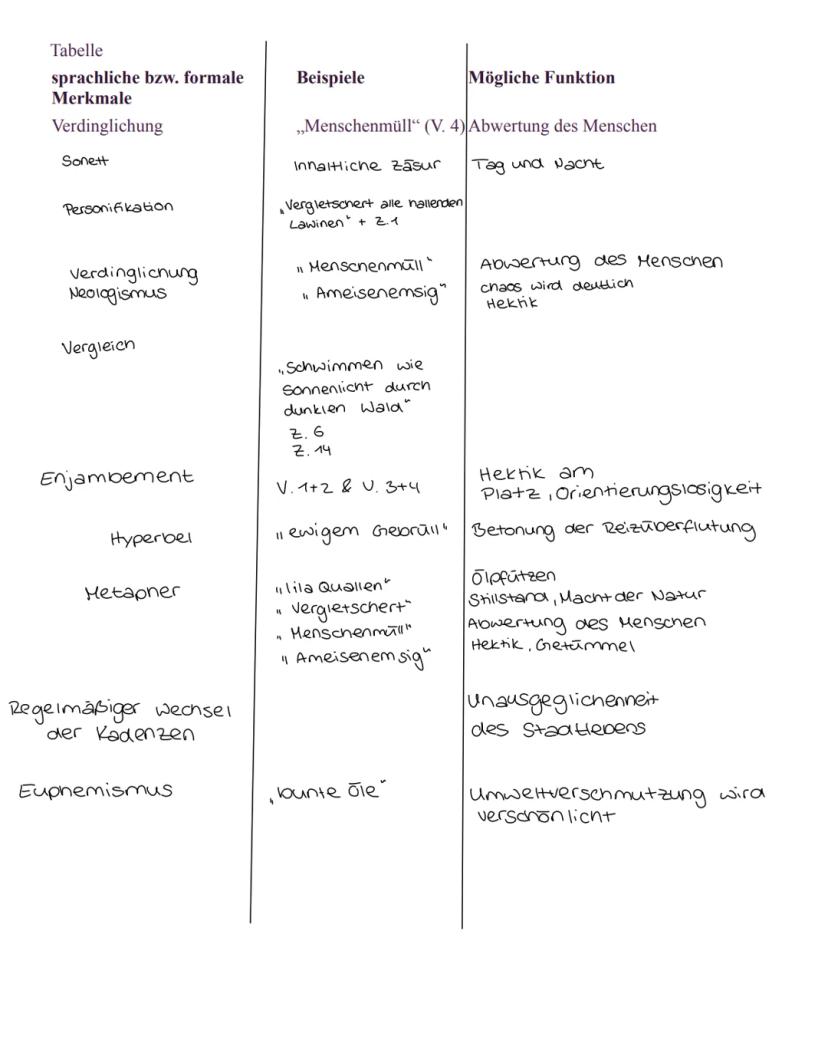 Tabelle
sprachliche bzw. formale Merkmale | Beispiele | Mögliche Funktion
Verdinglichung | „Menschenmüll“ (V. 4) | Abwertung des Menschen
Sonett | Inhaltliche Zäsur | Tag und Nacht
Personifikation | „Vergletschert alle hallenden
Lawinen“ + Z.1
Verdinglichung | „Menschenmüll“ | Abwertung des Menschen
Neologismus | „Ameisenemsig“ | chaos wird deutlich
Hektik
Vergleich
„Schwimmen wie
Sonnenlicht durch
dunklen Wald“
Z. 6
Z. 14
Enjambement | V. 1+2 & V. 3+4 | Hektik am
Platz, Orientierungslosigkeit
Hyperbel | „ewigem Gebrüll“ | Betonung der Reizüberflutung
Metapher | „lila Quallen“ | Ölpfützen
„Vergletschert“ | Stillstand, Macht der Natur
„Menschenmüll“ | Abwertung des Menschen
„Ameisenemsig“ | Hektik, Getümmel
Regelmäßiger Wechsel | Unausgeglichenheit
der Kadenzen | des Stadtlebens
Euphemismus | „bunte Öle“ | Umweltverschmutzung wird
verschönlicht